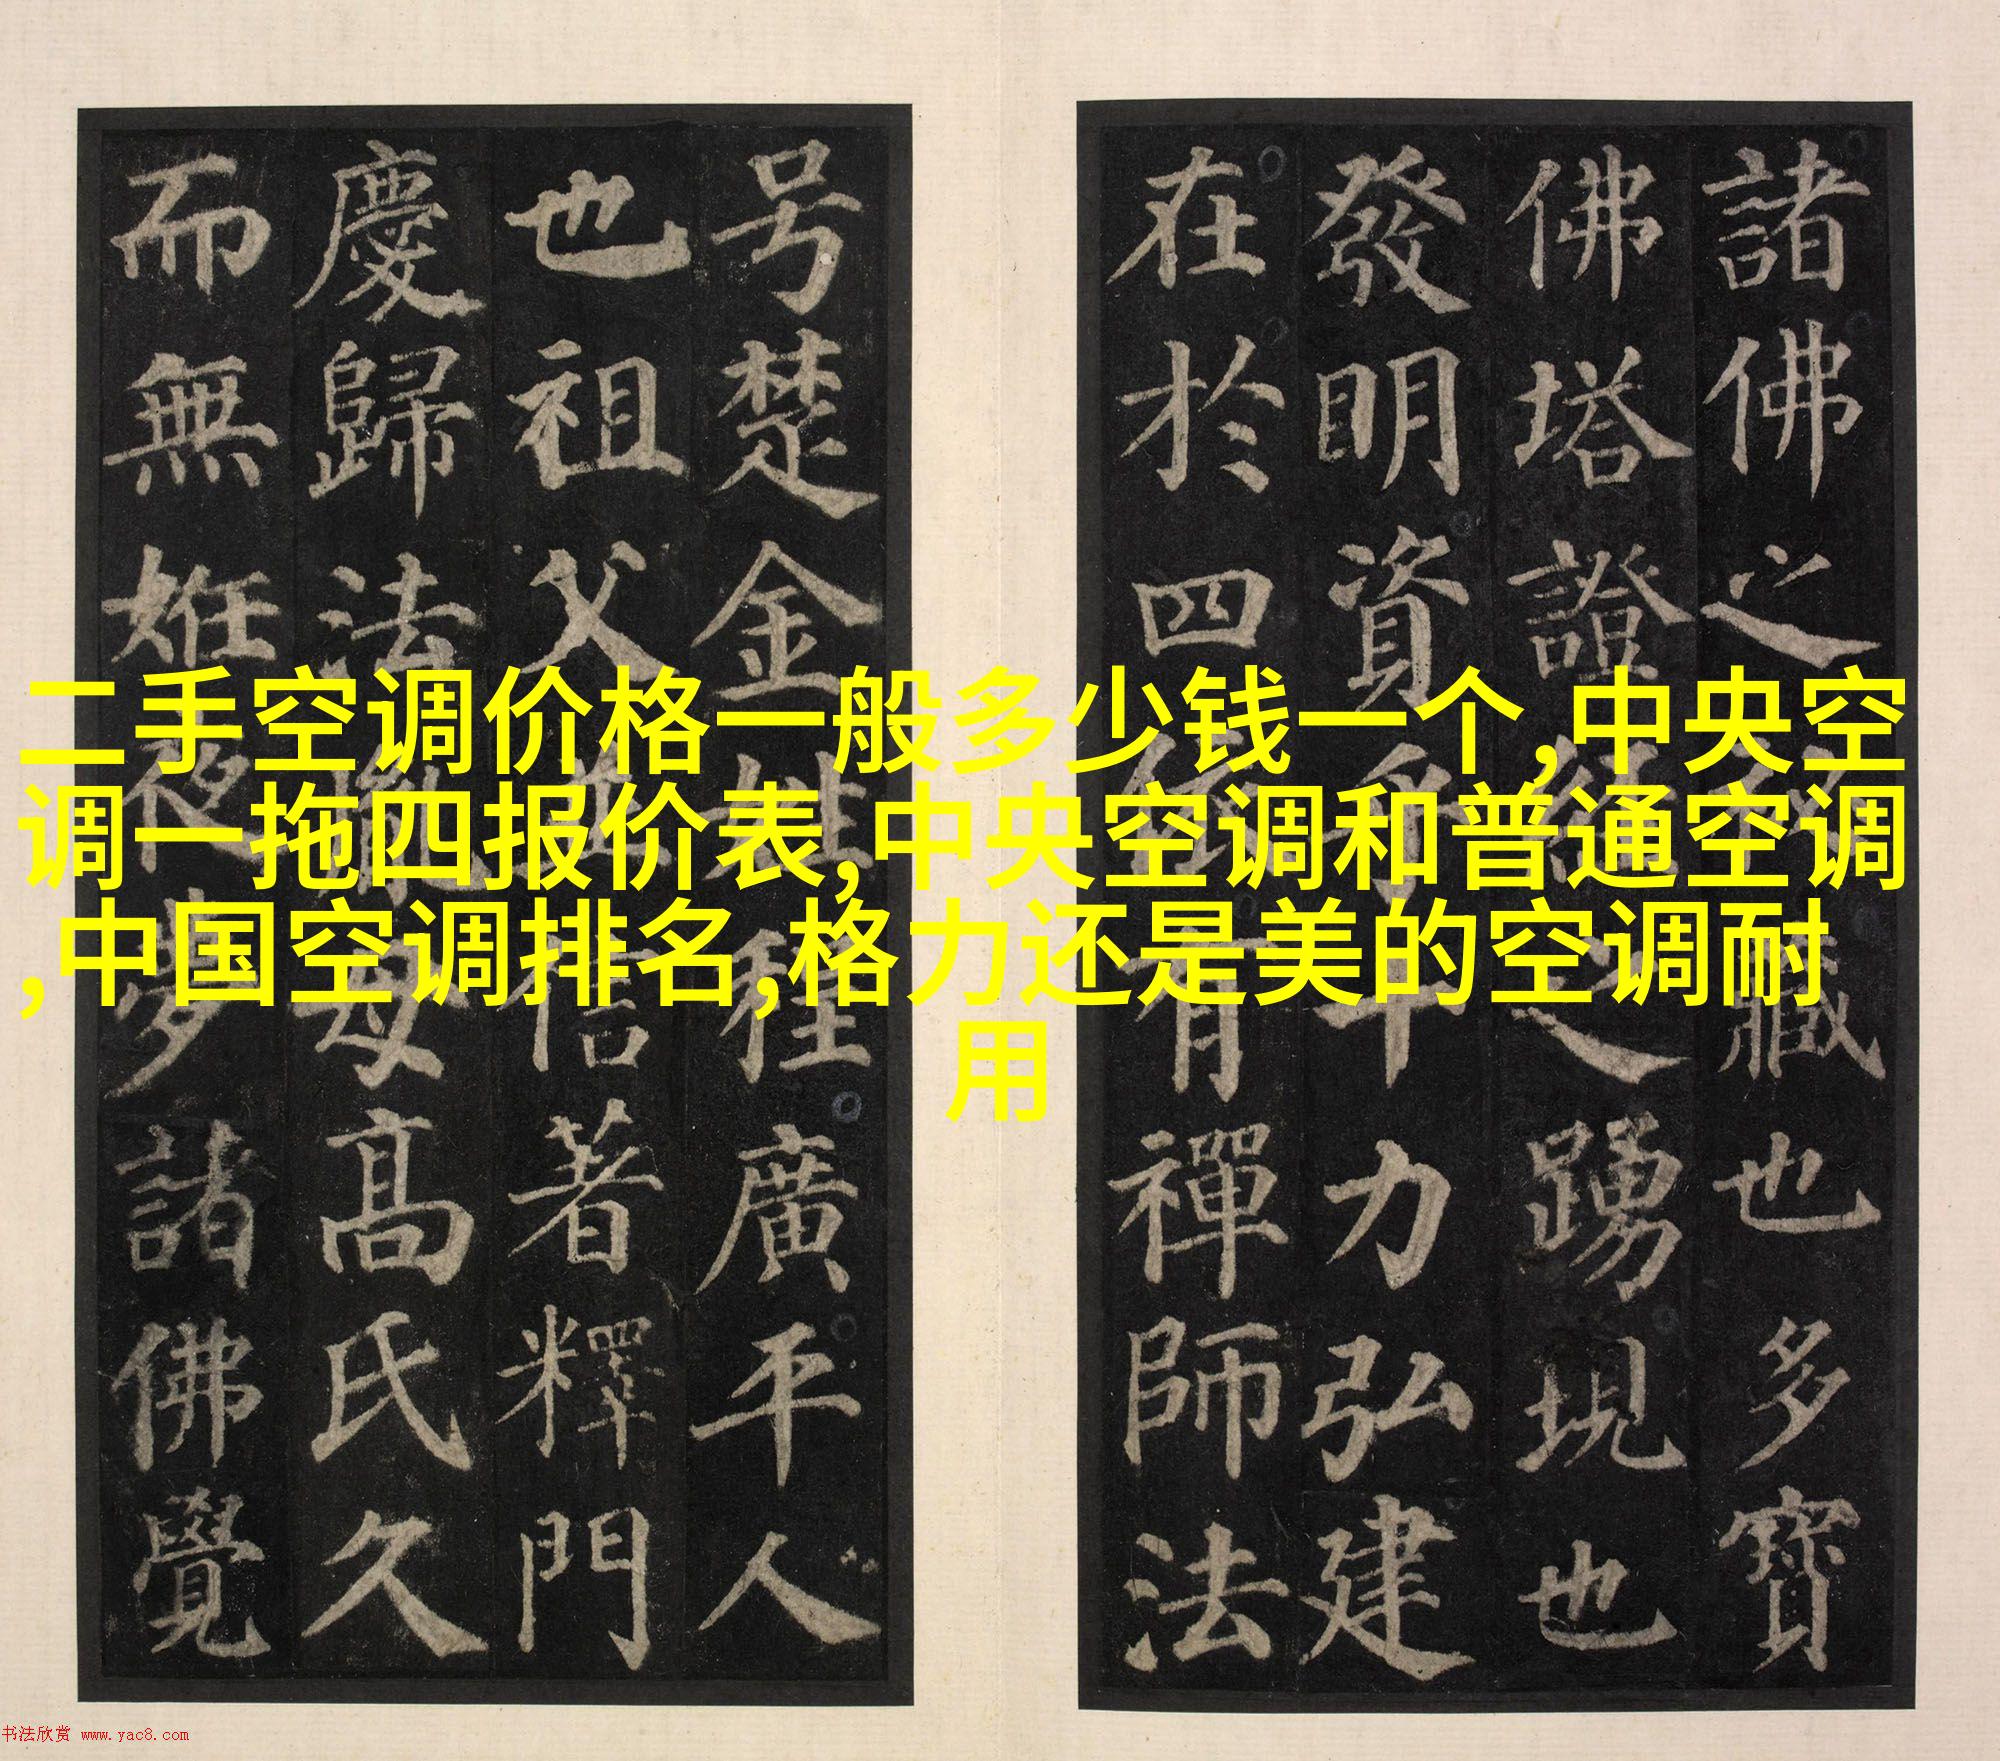 二手空调价格一般多少钱一个,中央空
调一拖四报价表,中央空调和普通空调
,中国空调排名,格力还是美的空调耐
用
諸佛之藏也多寶
佛塔證之踴現也
發明資乎十力弘建
在於四有禪師法
号楚金姓程廣平人
也祖父信著釋門
慶歸法母高氏久
而無姙夜夢諸佛覺
书法欣赏 www.yac8.com